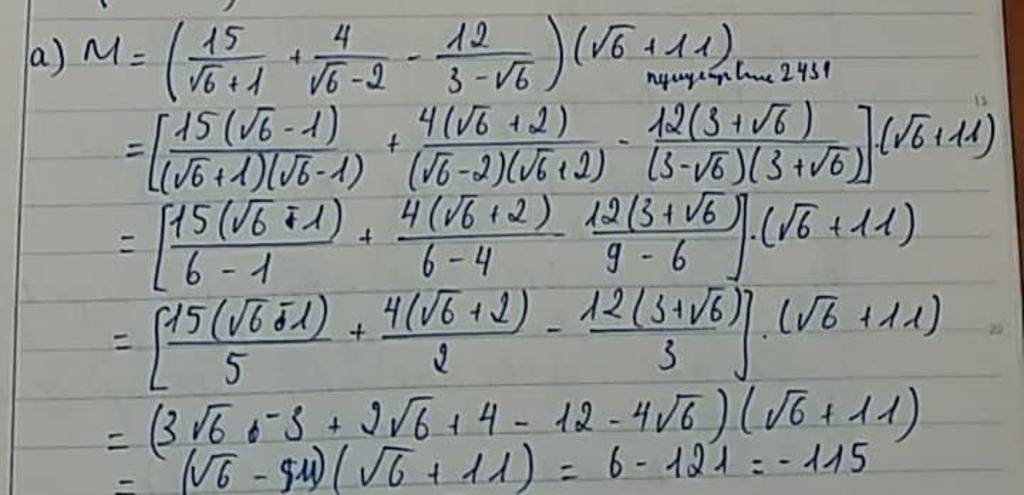 a) M = (15/(√6 + 1) + 4/(√6 - 2) - 12/(3 - √6)) (√6 + 11)
= [15(√6 - 1)/((√6 + 1)(√6 - 1)) + 4(√6 + 2)/((√6 - 2)(√6 + 2)) - 12(3 + √6)/((3 - √6)(3 + √6))].(√6 + 11)
= [15(√6 - 1)/(6 - 1) + 4(√6 + 2)/(6 - 4) - 12(3 + √6)/(9 - 6)].(√6 + 11)
= [15(√6 - 1)/5 + 4(√6 + 2)/2 - 12(3 + √6)/3].(√6 + 11)
= (3√6 - 3 + 2√6 + 4 - 12 - 4√6)(√6 + 11)
= (√6 - 11)(√6 + 11) = 6 - 121 = -115